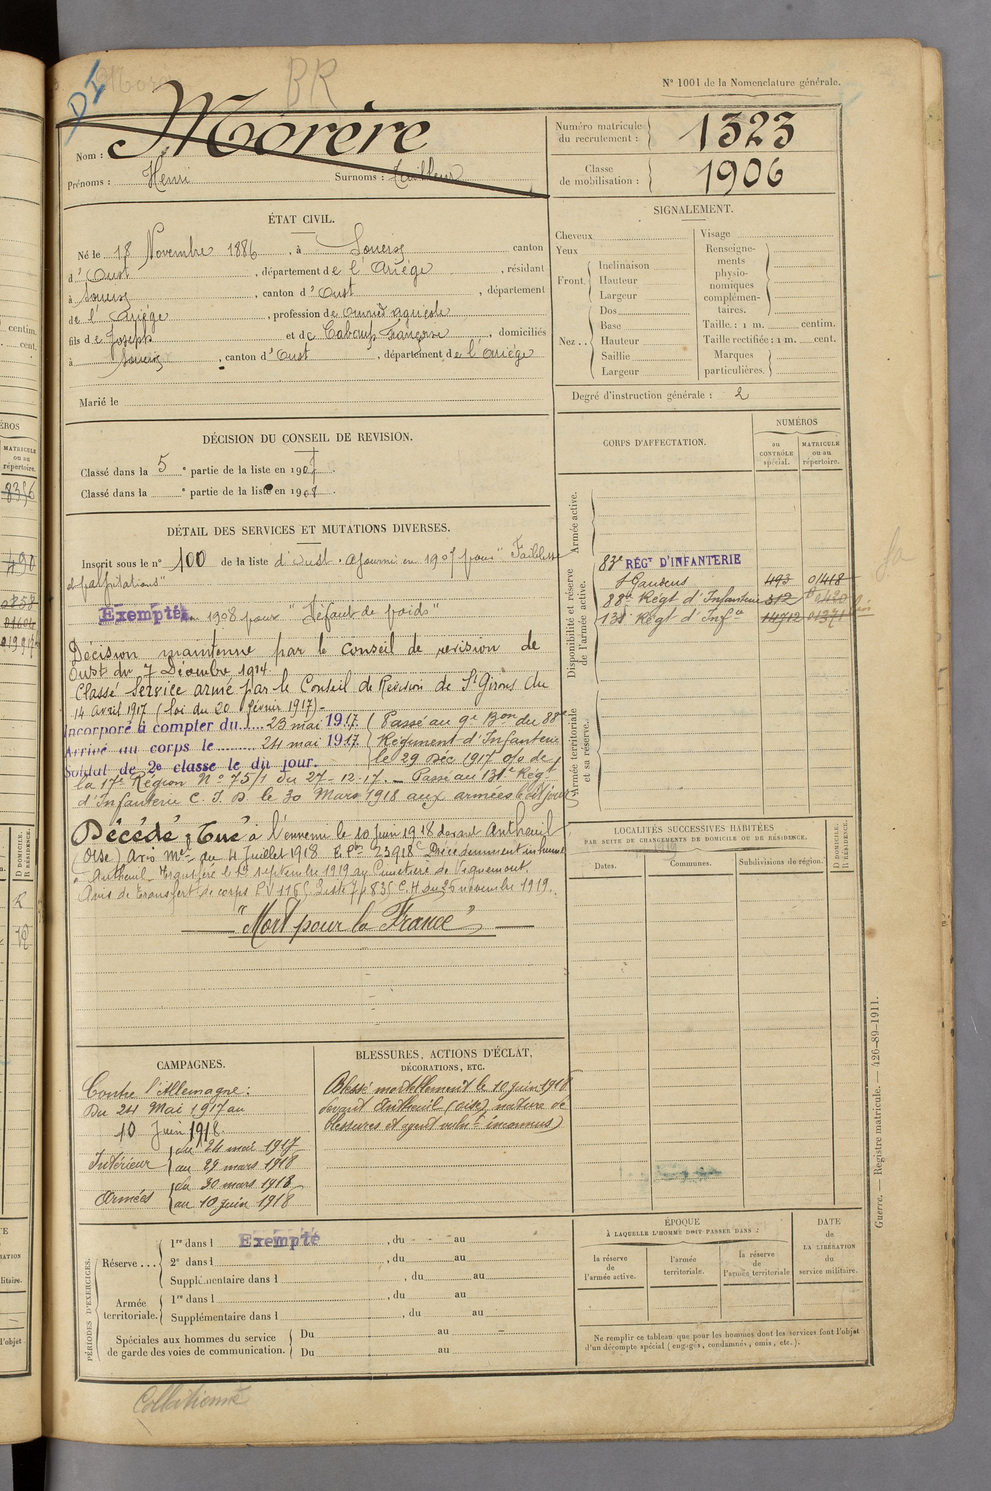 BR
N° 1001 de la Nomenclature générale.
Nom : Morère
Prénoms : Henri Surnoms : Tailleur
Numéro matricule du recrutement : 1323
Classe de mobilisation : 1906
ÉTAT CIVIL.
Né le 18 Novembre 1886, à Soueix, canton
d'Oust, département de l'Ariège, résidant
à Soueix, canton d'Oust, département
de l'Ariège, profession de ouvrier agricole
fils de Joseph et de Caboup Françoise, domiciliés
à Soueix, canton d'Oust, département de l'Ariège
Marié le
SIGNALEMENT.
Cheveux
Yeux
Front. Inclinaison
Hauteur
Largeur
Nez Dos
Base
Hauteur
Saillie
Largeur
Visage
Renseignements physionomiques complémentaires.
Taille : 1 m. centim.
Taille rectifiée : 1 m. cent.
Marques particulières.
Degré d'instruction générale : 2
DÉCISION DU CONSEIL DE REVISION.
Classé dans la 5e partie de la liste en 1907.
Classé dans la e partie de la liste en 1908.
DÉTAIL DES SERVICES ET MUTATIONS DIVERSES.
Inscrit sous le n° 100 de la liste d'Oust. Ajourné en 1907 pour "Faiblesse
et palpitations"
Exempté en 1908 pour "Défaut de poids"
Décision maintenue par le conseil de revision de
Oust du 7 Décembre 1914.
Classé service armé par le Conseil de Revision de St Girons du
14 avril 1917 (loi du 20 février 1917)
Incorporé à compter du 23 mai 1917. Passé au 9e Bon du 88e
Arrivé au corps le 24 mai 1917. Régiment d'Infanterie
Soldat de 2e classe le dit jour. le 29 Déc 1917 o/o de
la 17e Région N° 75/1 du 27-12-17. Passé au 131e Régt
d'Infanterie C. I. D. le 30 Mars 1918 aux armées le dit jour
Décédé : Tué à l'ennemi le 10 juin 1918 devant Antheuil
(Oise) Avis Mel du 4 Juillet 1918 E Pen 23918 Précédemment inhumé
à Antheuil Transféré le 19 septembre 1919 au Cimetière de Vignemont.
Avis de transfert de corps du 25 novembre 1919.
"Mort pour la France"
CORPS D'AFFECTATION.
NUMÉROS
au CONTRÔLE spécial.
MATRICULE ou au répertoire.
Armée active.
Disponibilité et réserve de l'armée active.
Armée territoriale et sa réserve.
83e RÉGT D'INFANTERIE
St Gaudens 493 0/418
88e Régt d'Infanterie 312
131 Régt d'Infie 14912 01371
LOCALITÉS SUCCESSIVES HABITÉES
PAR SUITE DE CHANGEMENTS DE DOMICILE OU DE RÉSIDENCE.
Dates. Communes. Subdivisions de région.
D DOMICILE; R RÉSIDENCE.
CAMPAGNES.
Contre l'Allemagne :
Du 24 Mai 1917 au
10 Juin 1918.
Intérieur du 24 mai 1917
au 29 mars 1918
Armées du 30 mars 1918
au 10 juin 1918
BLESSURES, ACTIONS D'ÉCLAT,
DÉCORATIONS, ETC.
Blessé mortellement le 10 juin 1918
devant Antheuil (oise) nature de
blessures et agent vulnt inconnus)
PÉRIODES D'EXERCICES.
Réserve
1re dans l Exempté, du au
2e dans l, du au
Supplémentaire dans l, du au
Armée territoriale.
1re dans l, du au
Supplémentaire dans l, du au
Spéciales aux hommes du service
de garde des voies de communication.
Du au
Du au
ÉPOQUE
À LAQUELLE L'HOMME DOIT PASSER DANS :
la réserve de l'armée active.
l'armée territoriale.
la réserve de l'armée territoriale
DATE de LA LIBÉRATION du service militaire.
Ne remplir ce tableau que pour les hommes dont les services font l'objet
d'un décompte spécial (engagés, condamnés, omis, etc.).
Guerre. — Registre matricule. — 426-89-1911.
Collationné